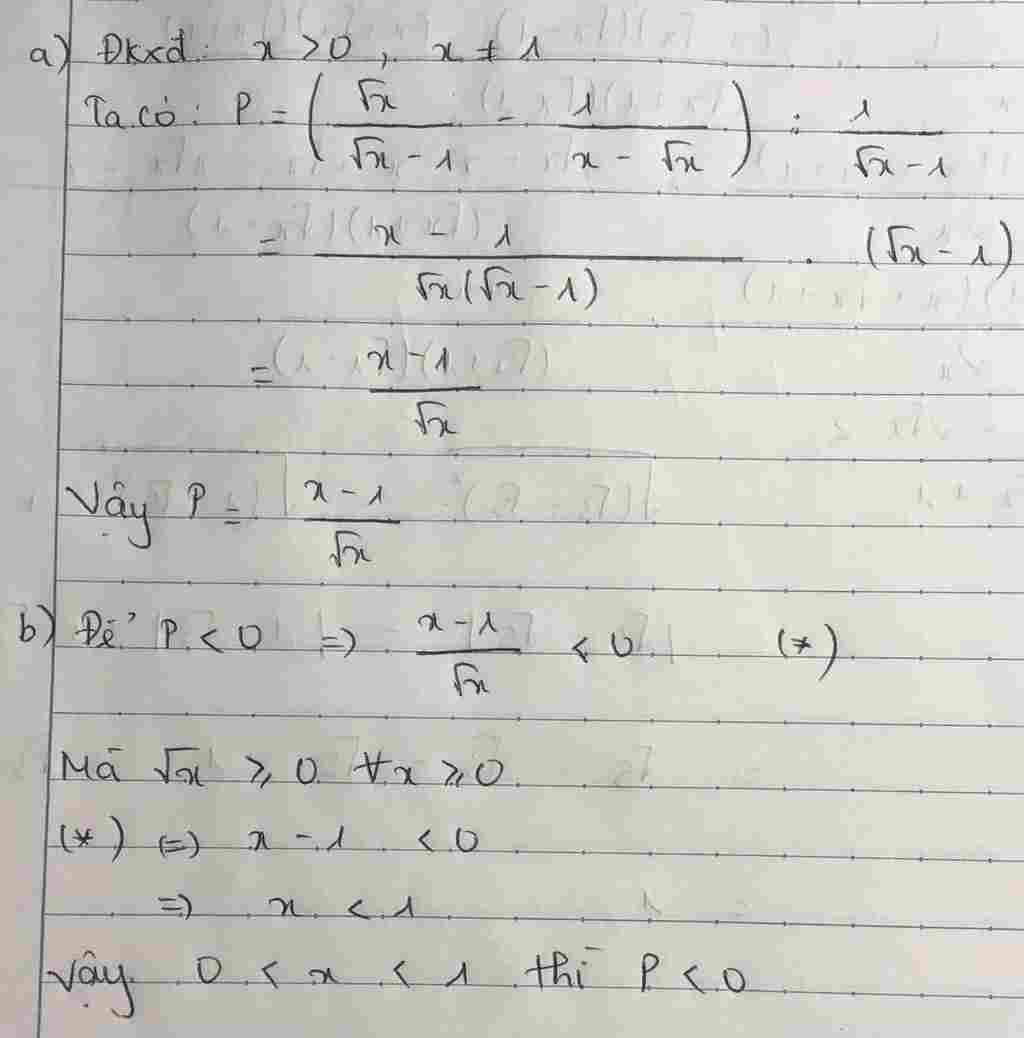 a) Đkxđ: x > 0, x ≠ 1
Ta có: P = (√x/(√x - 1) - 1/(x - √x)) : 1/(√x - 1)
= (x - 1)/(√x(√x - 1)) . (√x - 1)
= (x - 1)/√x
Vậy P = (x - 1)/√x
b) Để P < 0 => (x - 1)/√x < 0 (*)
Mà √x ≥ 0 ∀x ≥ 0
(*) (=) x - 1 < 0
=) x < 1
Vậy 0 < x < 1 thì P < 0